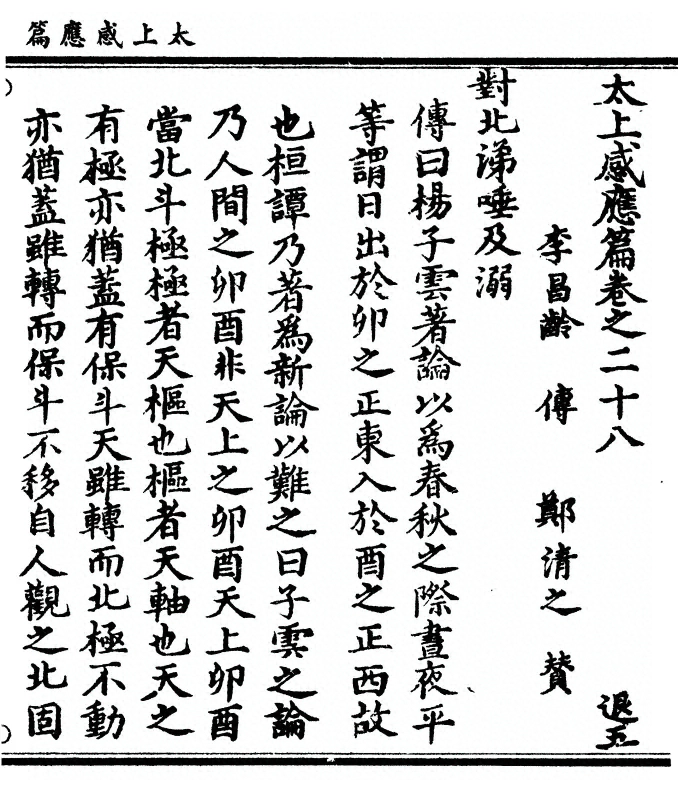 太上感應篇
太上感應篇卷之二十八 退五
李昌齡 傳 鄭清之 贊
對北涕唾及溺
傳曰楊子雲著論以爲春秋之際晝夜平
等謂日出於卯之正東入於酉之正西故
也桓譚乃著爲新論以難之曰子雲之論
乃人間之卯酉非天上之卯酉天上卯酉
當北斗極極者天樞也樞者天軸也天之
有極亦猶蓋有保斗天雖轉而北極不動
亦猶蓋雖轉而保斗不移自人觀之北固